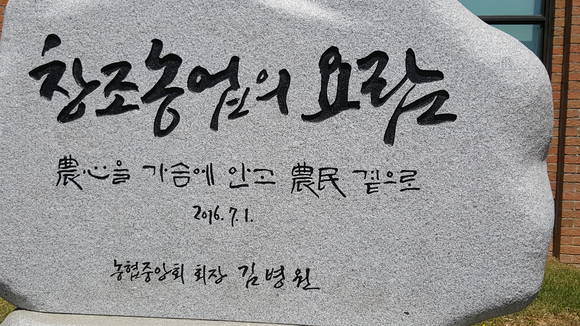 창조농업의 요람
農心을 가슴에 안고 農民 곁으로
2016.7.1.
농협중앙회 회장 김병원